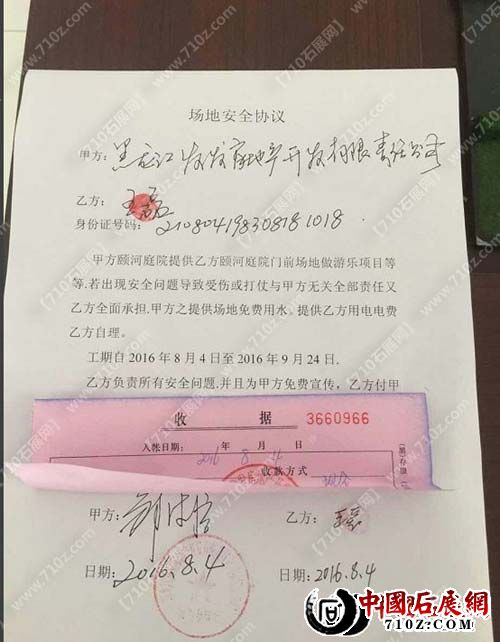 场地安全协议
甲方:黑龙江发发房地产开发有限责任公司
乙方:王磊
身份证号码:210804198308181018
甲方颐河庭院提供乙方颐河庭院门前场地做游乐项目等
等,若出现安全问题导致受伤或打仗与甲方无关全部责任又
乙方全面承担,甲方之提供场地免费用水。提供乙方用电电费
乙方自理。
工期自2016年8月4日至2016年9月24日.
乙方负责所有安全问题,并且为甲方免费宣传,乙方付甲
收 据 3660966
入帐日期: 2016 年 8 月 4 日
收款方式
甲方:
乙方:王磊
日期:2016.8.4
日期:2016.8.4
中國石展網
710Z.COM
【710石展网】
www.710z.com